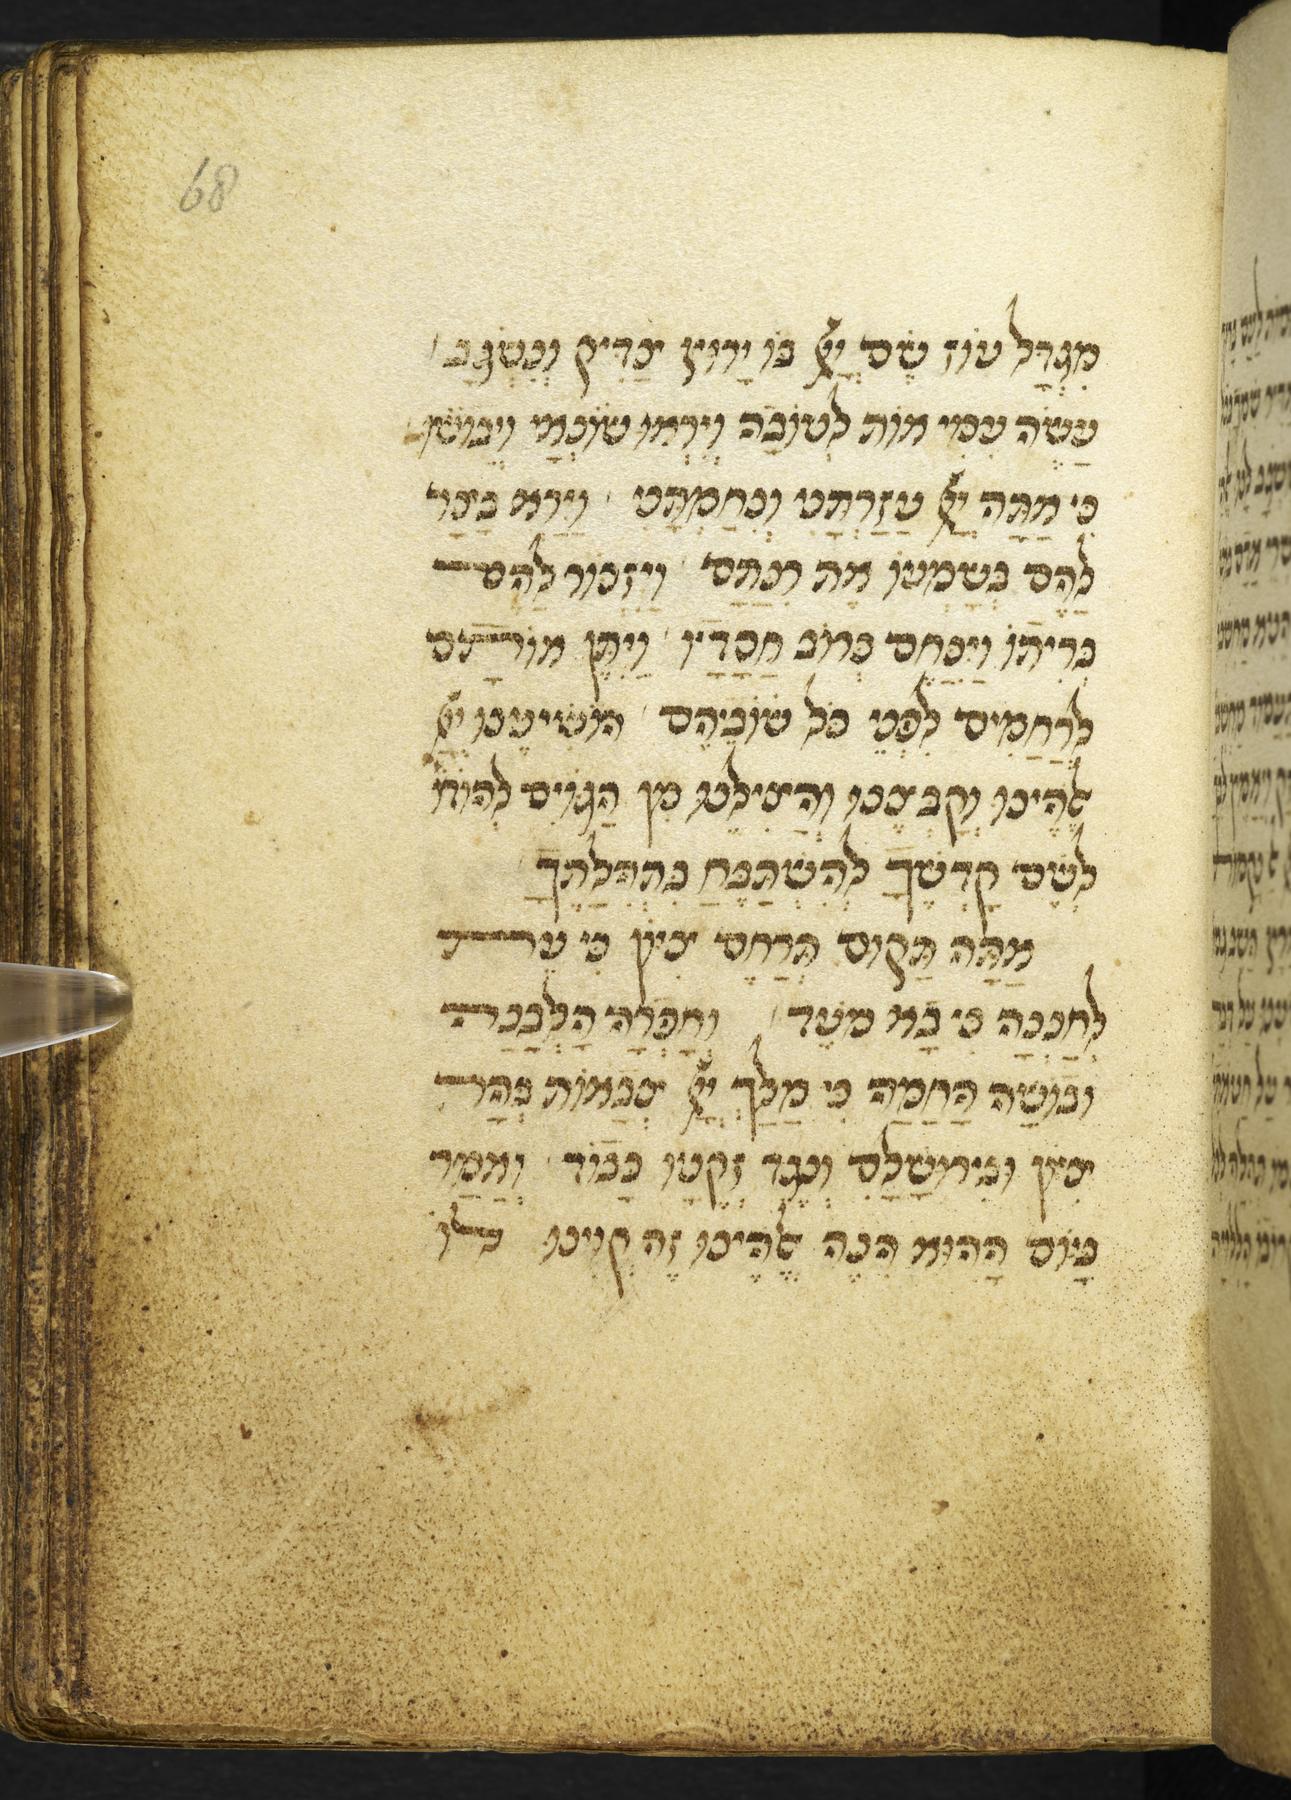 68
מִגְדַּל עוֹז שֵׁם יְיָ בּוֹ יָרוּץ צַדִּיק וְנִשְׂגָּב
עֲשֵׂה עִמִּי אוֹת לְטוֹבָה וְיִרְאוּ שׂוֹנְאַי וְיֵבוֹשׁוּ
כִּי אַתָּה יְיָ עֲזַרְתַּנִי וְנִחַמְתָּנִי וַיַּרְא בַּצַּר
לָהֶם בְּשָׁמְעוֹ אֶת רִנָּתָם וַיִּזְכּוֹר לָהֶם
בְּרִיתוֹ וַיִּנָּחֵם כְּרוֹב חֲסָדָיו וַיִּתֵּן אוֹתָם
לְרַחֲמִים לִפְנֵי כָּל שׁוֹבֵיהֶם הוֹשִׁיעֵנוּ יְיָ
אֱלֹהֵינוּ וְקַבְּצֵנוּ וְהַצִּילֵנוּ מִן הַגּוֹיִם לְהוֹדוֹת
לְשֵׁם קָדְשֶׁךָ לְהִשְׁתַּבֵּחַ בִּתְהִלָּתֶךָ
אַתָּה תָקוּם תְּרַחֵם צִיּוֹן כִּי עֵת
לְחֶנְנָהּ כִּי בָא מוֹעֵד וְחָפְרָה הַלְּבָנָה
וּבוֹשָׁה הַחַמָּה כִּי מָלַךְ יְיָ צְבָאוֹת בְּהַר
צִיּוֹן וּבִירוּשָׁלַםִ וְנֶגֶד זְקֵנָיו כָּבוֹד וְאָמַר
בַּיּוֹם הַהוּא הִנֵּה אֱלֹהֵינוּ זֶה קִוִּינוּ לוֹ